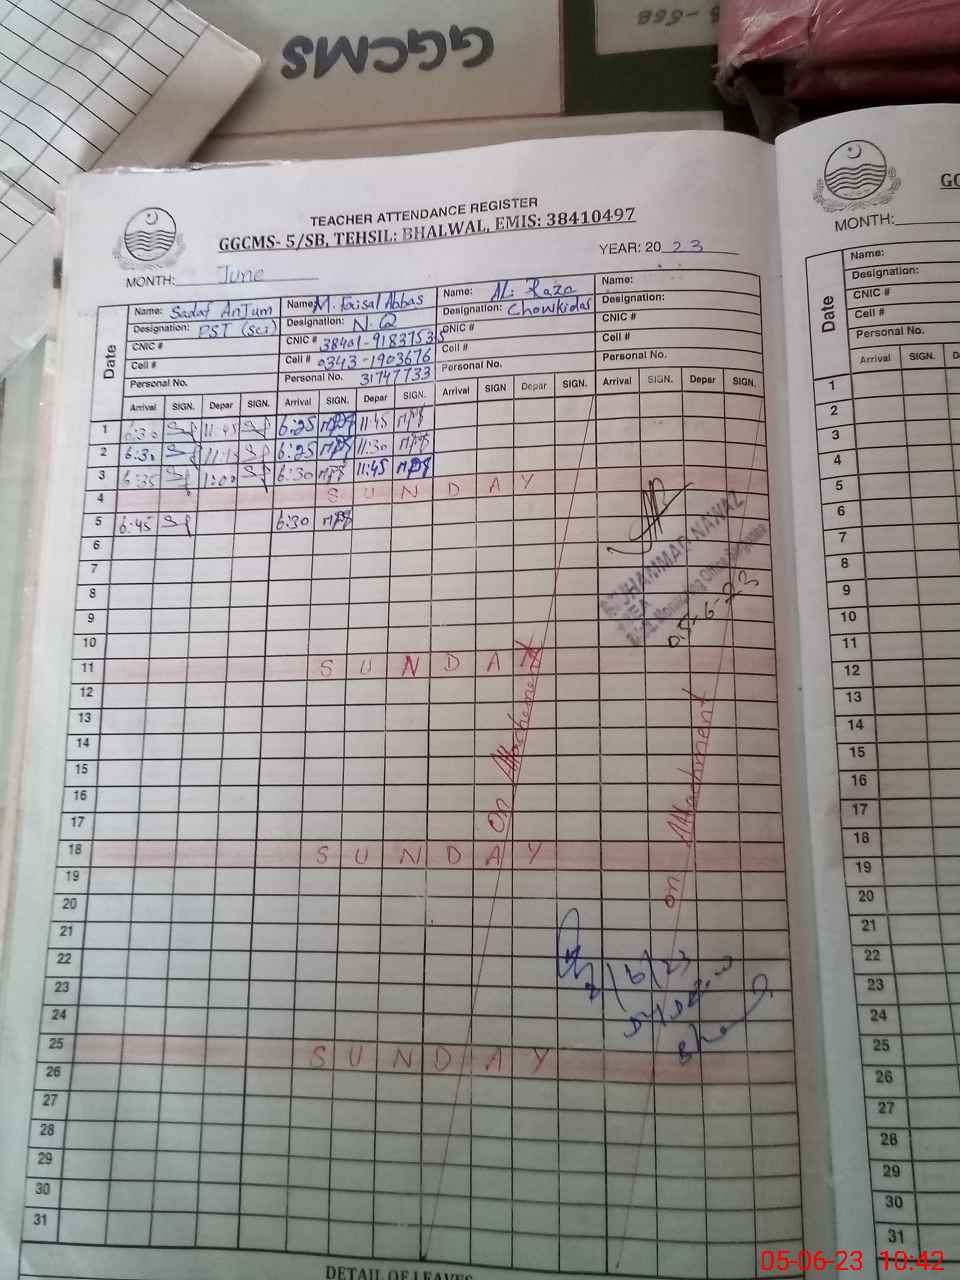 GGCMS
TEACHER ATTENDANCE REGISTER
GGCMS- 5/SB, TEHSIL: BHALWAL, EMIS: 38410497
MONTH: June YEAR: 2023
Date
Name: Sadaf Anjum Name: M. Faisal Abbas Name: Ali Raza Name:
Designation: PST (Sci) Designation: N.Q Designation: Chowkidar Designation:
CNIC # CNIC # 38401-9183753-5 CNIC # CNIC #
Cell # Cell # 0343-1903676 Cell # Cell #
Personal No. Personal No. 31747733 Personal No. Personal No.
Arrival SIGN. Depar SIGN. Arrival SIGN. Depar SIGN. Arrival SIGN Depar SIGN. Arrival SIGN. Depar SIGN.
1 6:30 11:45 6:25 11:45
2 6:30 11:15 6:25 11:30
3 6:35 1:00 6:30 11:45
4 SUNDAY
5 6:45 6:30
6
7
8
9
10
11 SUNDAY
12
13
14
15
16
17
18 SUNDAY
19
20
21
22
23
24
25 SUNDAY
26
27
28
29
30
31
MUHAMMAD NAWAZ
05-6-23
On Attachement
on Attachment
DETAIL OF LEAVES
MONTH:
Date
Name:
Designation:
CNIC #
Cell #
Personal No.
Arrival SIGN.
1
2
3
4
5
6
7
8
9
10
11
12
13
14
15
16
17
18
19
20
21
22
23
24
25
26
27
28
29
30
31
05-06-23 10:42